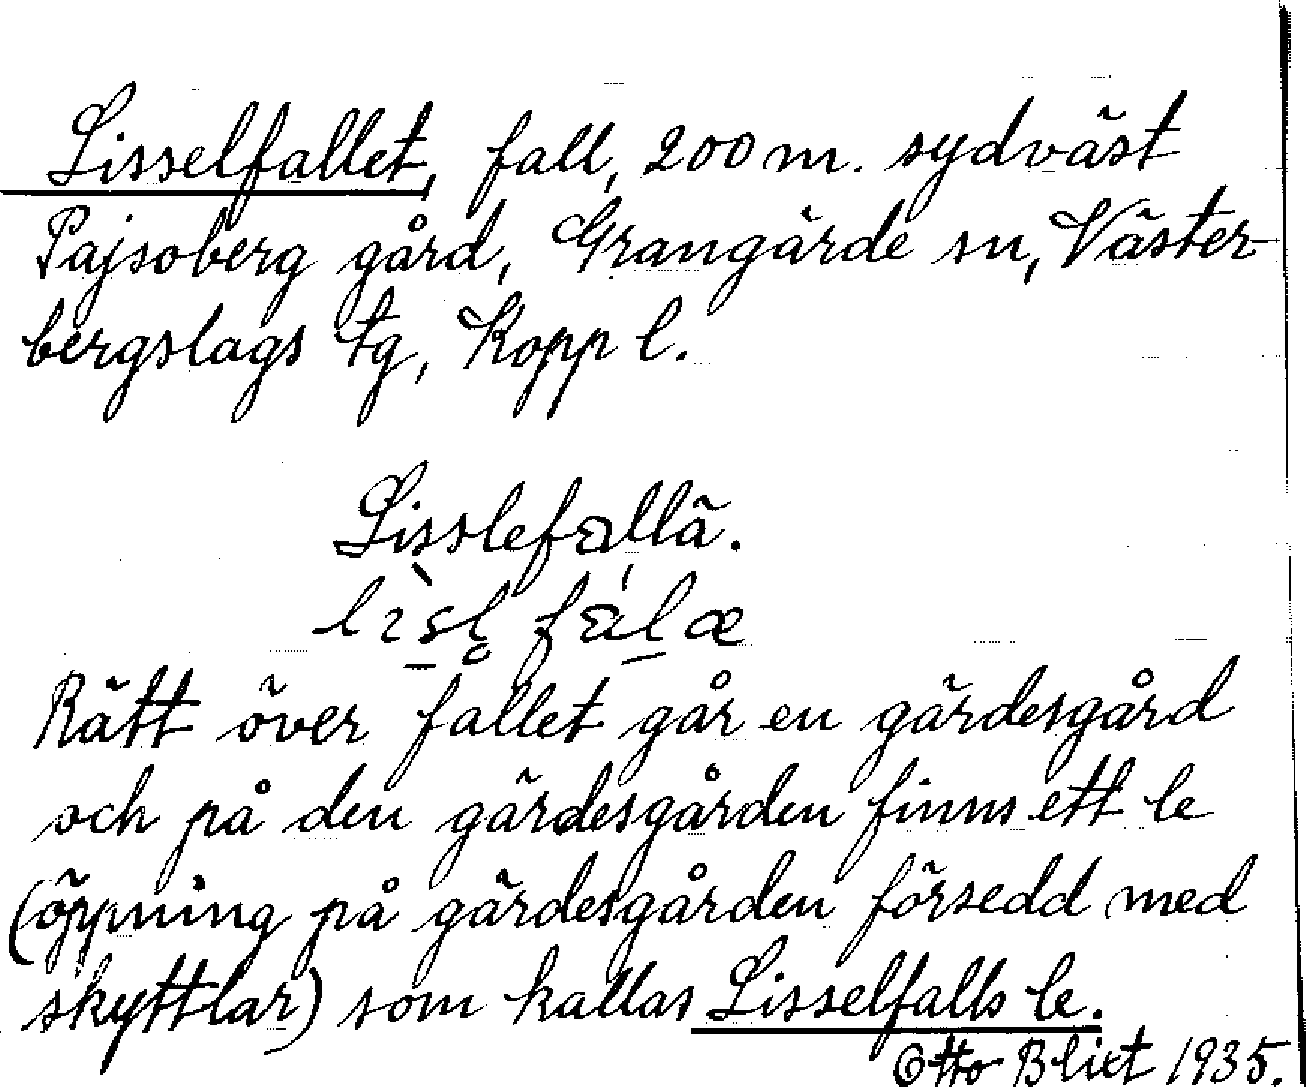 Lisselfallet, fall, 200 m. sydväst
Pajsoberg gård, Grangärde sn, Väster-
bergslags tg, Kopp l.
Lisslefallä.
Rätt över fallet går en gärdesgård
och på den gärdesgården finns ett le
(öppning på gärdesgården försedd med
skyttlar) som kallas Lisselfalls le.
Otto Blixt 1935.